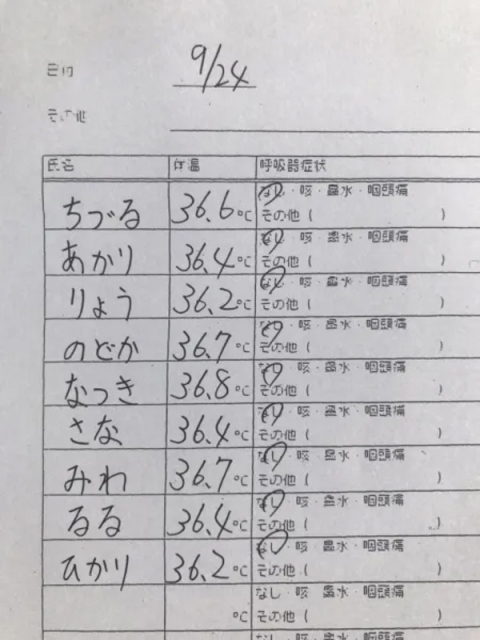 日付 9/24
その他
氏名 体温 呼吸器症状
ちづる 36.6℃ なし・咳・鼻水・咽頭痛
その他( )
あかり 36.4℃ なし・咳・鼻水・咽頭痛
その他( )
りょう 36.2℃ なし・咳・鼻水・咽頭痛
その他( )
のどか 36.7℃ なし・咳・鼻水・咽頭痛
その他( )
なつき 36.8℃ なし・咳・鼻水・咽頭痛
その他( )
さな 36.4℃ なし・咳・鼻水・咽頭痛
その他( )
みわ 36.7℃ なし・咳・鼻水・咽頭痛
その他( )
るる 36.4℃ なし・咳・鼻水・咽頭痛
その他( )
ひかり 36.2℃ なし・咳・鼻水・咽頭痛
その他( )
℃ なし・咳・鼻水・咽頭痛
その他( )
なし・咳・鼻水・咽頭痛